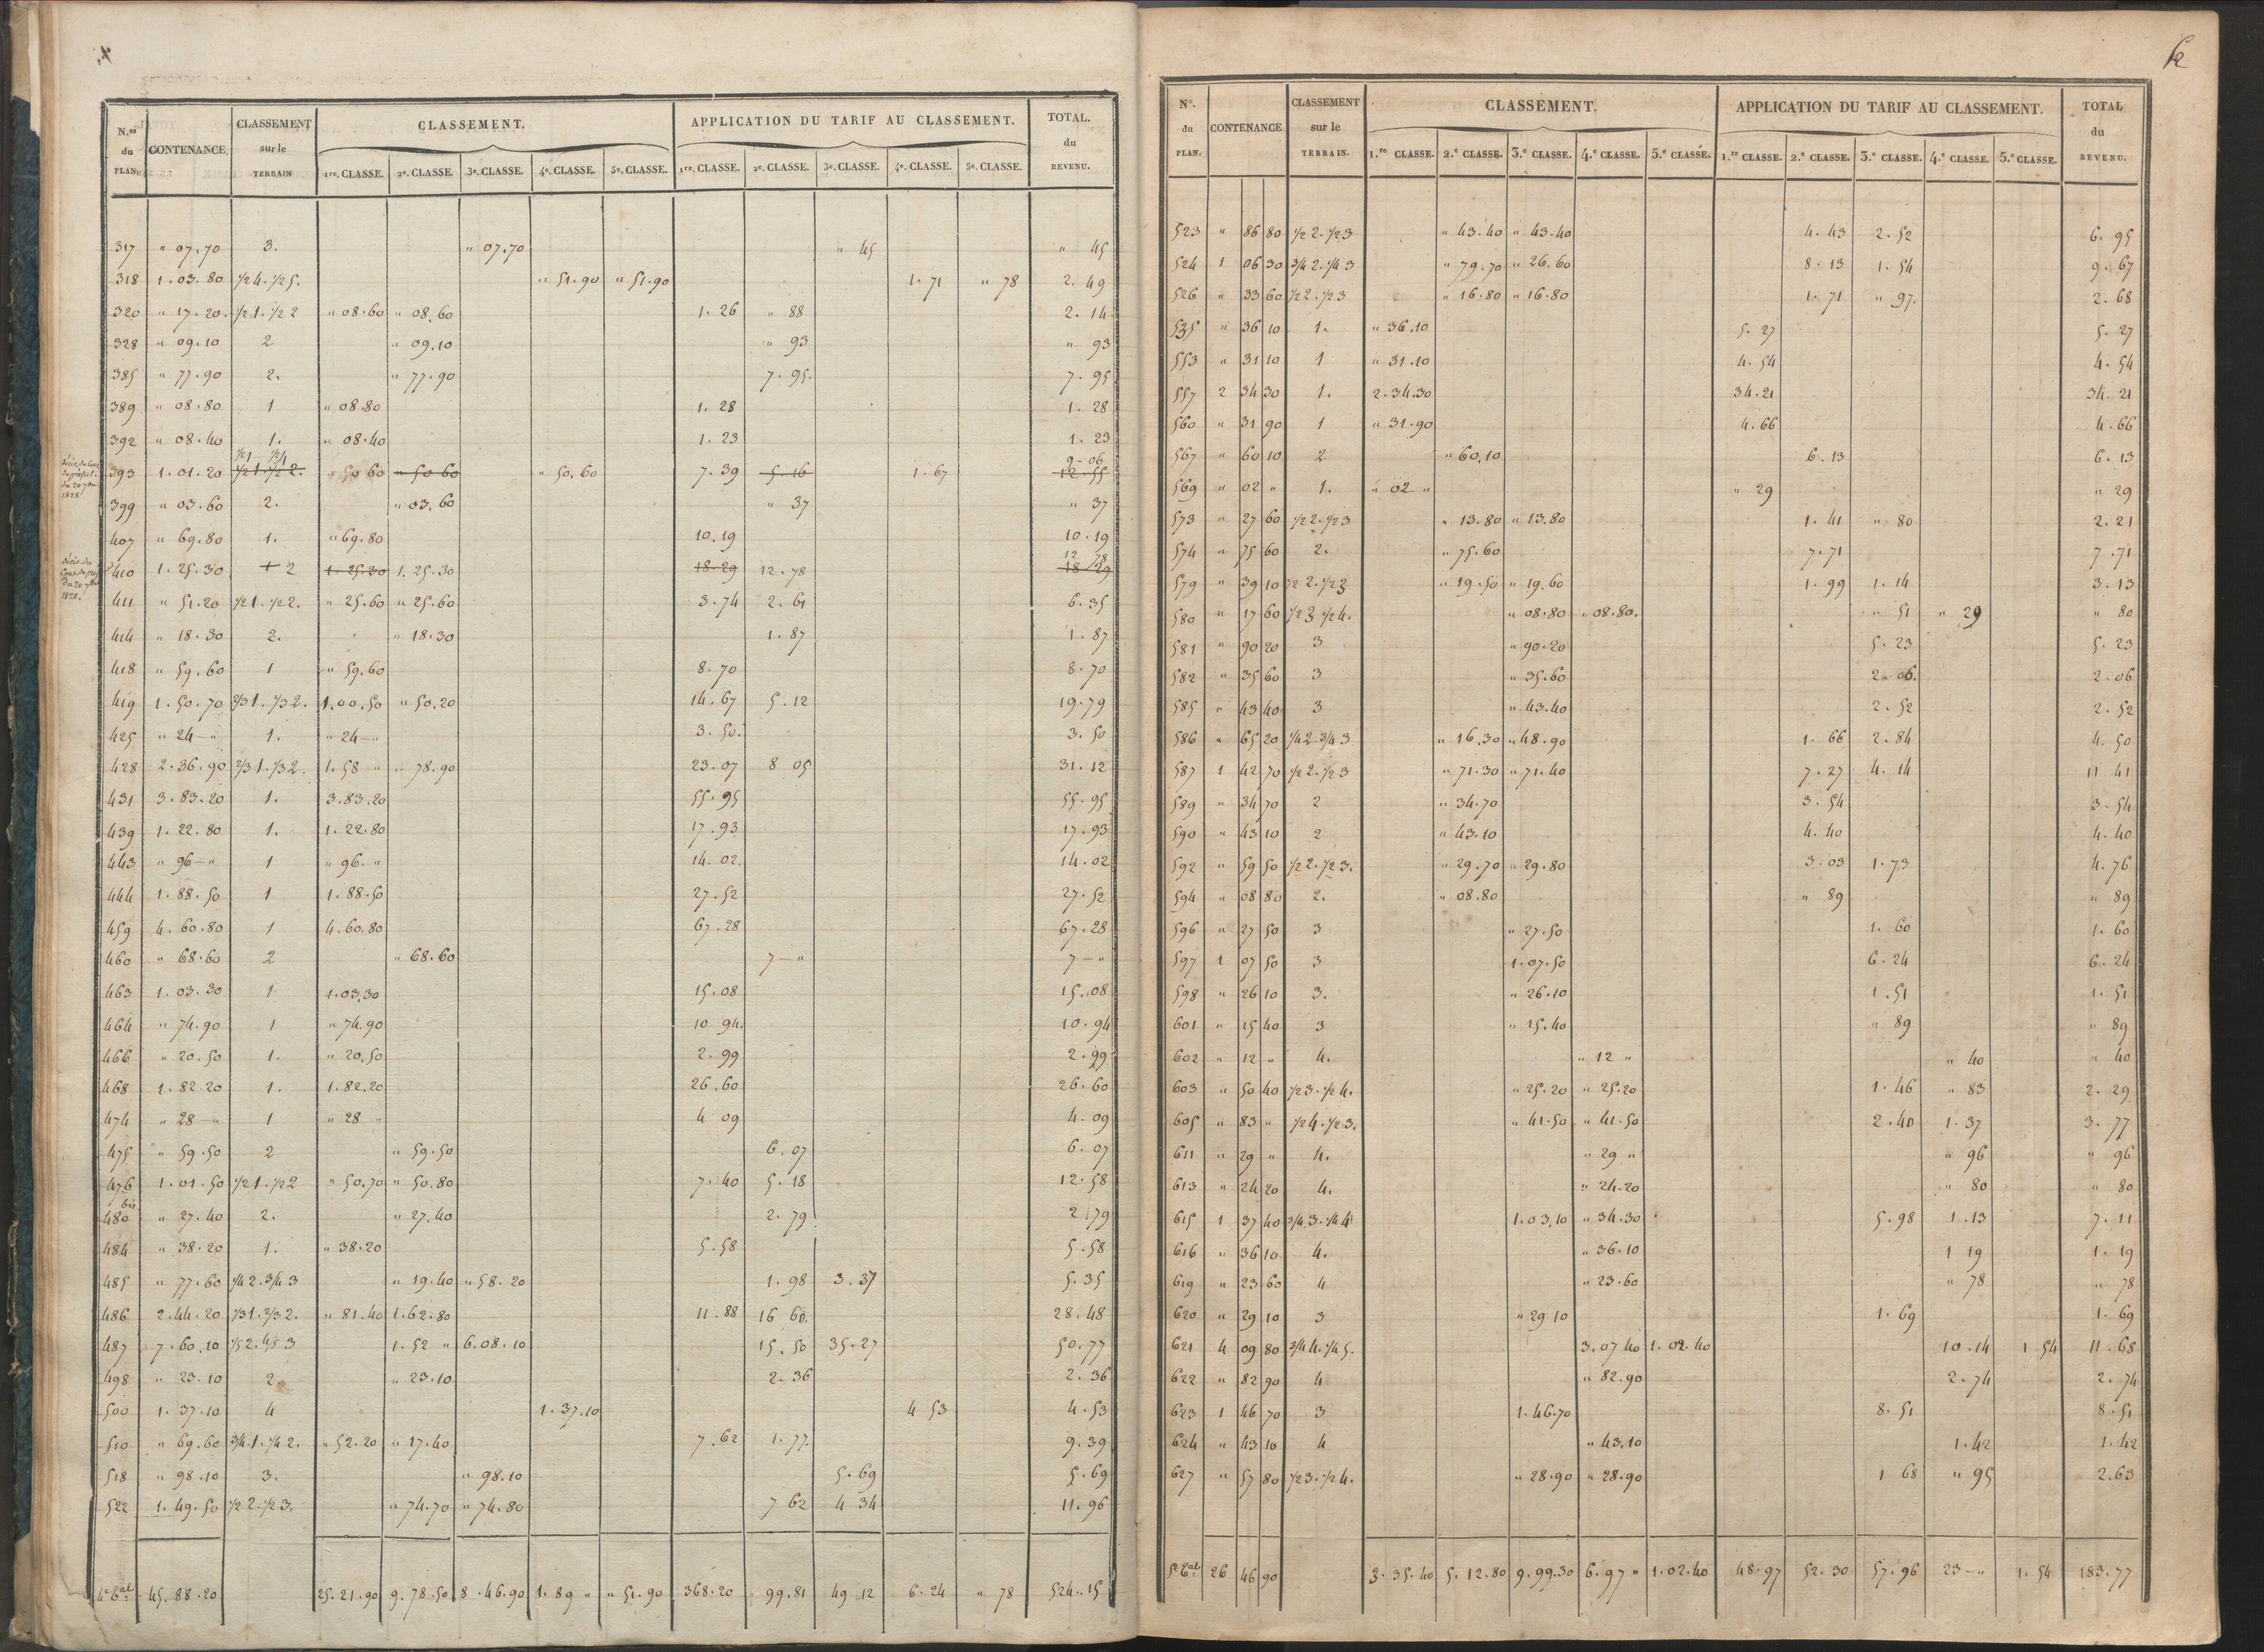 N.os du PLAN. CONTENANCE. CLASSEMENT sur le TERRAIN CLASSEMENT. APPLICATION DU TARIF AU CLASSEMENT. TOTAL. du REVENU.
1re. CLASSE. 2e. CLASSE. 3e. CLASSE. 4e. CLASSE. 5e. CLASSE. 1re. CLASSE. 2e. CLASSE. 3e. CLASSE. 4e. CLASSE. 5e. CLASSE.
317 " 07.70 3. " 07.70 " 45 " 45
318 1.03.80 1/2 4. 1/2 5. " 51.90 " 51.90 1.71 " 78 2.49
320 " 17.20. 1/2 1. 1/2 2 " 08.60 " 08.60 1.26 " 88 2.14
328 " 09.10 2 " 09.10 " 93 " 93
385 " 77.90 2. " 77.90 7.95. 7.95
389 " 08.80 1 " 08.80 1.28 1.28
392 " 08.40 1. " 08.40 1.23 1.23
1/2 1 1/2 4 9-06
393 1.01.20 1/2 1. 1/2 2. " 50 60 " 50 60 " 50.60 7.39 5.16 1.67 12.55
399 " 03.60 2. " 03.60 " 37 " 37
407 " 69.80 1. " 69.80 10.19 10.19
12 78
410 1.25.30 1 2 1.25.30 1.25.30 18.29 12.78 18.29
411 " 51.20 1/2 1. 1/2 2. " 25.60 " 25.60 3.74 2.61 6.35
414 " 18.30 2. " 18.30 1.87 1.87
418 " 59.60 1 " 59.60 8.70 8.70
419 1.50.70 2/3 1. 1/3 2. 1.00.50 " 50.20 14.67 5.12 19.79
425 " 24-" 1. " 24-" 3.50. 3.50
428 2.36.90 2/3 1. 1/3 2. 1.58 " " 78.90 23.07 8 05 31.12
431 3.83.20 1. 3.83.20 55.95 55.95
439 1.22.80 1. 1.22.80 17.93 17.93
443 " 96-" 1 " 96. " 14.02. 14.02
444 1.88.50 1 1.88.50 27.52 27.52
459 4.60.80 1 4.60.80 67.28 67.28
460 " 68.60 2 " 68.60 7-" 7-"
463 1.03.30 1 1.03.30 15.08 15.08
464 " 74.90 1 " 74.90 10 94. 10.94
466 " 20.50 1. " 20.50 2.99 2.99
468 1.82 20 1. 1.82.20 26.60 26.60
474 " 28-" 1 " 28 " 4 09 4.09
475 " 59.50 2 " 59.50 6.07 6.07
476 1.01.50 1/2 1. 1/2 2 " 50.70 " 50.80 7.40 5.18 12.58
bis
480 " 27.40 2. " 27.40 2.79 2.79
484 " 38.20 1. " 38.20 5.58 5.58
485 " 77.60 1/4 2. 3/4 3 " 19.40 " 58.20 1.98 3.37 5.35
486 2.44.20 1/3 1. 2/3 2. " 81.40 1.62.80 11.88 16 60. 28.48
487 7.60.10 1/5 2. 4/5 3 1.52 " 6.08.10 15.50 35.27 50.77
498 " 23.10 2. " 23.10 2.36 2.36
500 1.37.10 4 1.37.10 4 53 4.53
510 " 69.60 3/4 1. 1/4 2. " 52.20 " 17.40 7.62 1.77. 9.39
518 " 98.10 3. " 98.10 5.69 5.69
522 1.49.50 1/2 2. 1/2 3. " 74.70 " 74.80 7 62 4 34 11.96
45.88.20 25.21.90 9.78.50 8.46.90 1.89 " " 51.90 368.20 99.81 49.12 6.24 " 78 524.15
N°. du PLAN. CONTENANCE. CLASSEMENT sur le TERRAIN. CLASSEMENT. APPLICATION DU TARIF AU CLASSEMENT. TOTAL du REVENU.
1.re CLASSE. 2.e CLASSE. 3.e CLASSE. 4.e CLASSE. 5.e CLASSE. 1.re CLASSE. 2.e CLASSE. 3.e CLASSE. 4.e CLASSE. 5.e CLASSE.
523 " 86 80 1/2 2. 1/2 3 " 43.40 " 43.40 4.43 2.52 6.95
524 1 06 30 3/4 2. 1/4 3 " 79.70 " 26.60 8.13 1.54 9.67
526 " 33 60 1/2 2. 1/2 3 " 16.80 " 16.80 1.71 " 97. 2.68
535 " 36 10 1. " 36.10 5.27 5.27
553 " 31 10 1 " 31.10 4.54 4.54
557 2 34 30 1. 2.34.30 34.21 34.21
560 " 31 90 1 " 31.90 4.66 4.66
567 " 60 10 2 " 60.10 6.13 6.13
569 " 02 " 1. " 02 " " 29 " 29
573 " 27 60 1/2 2. 1/2 3 " 13.80 " 13.80 1.41 " 80 2.21
574 " 75 60 2. " 75.60 7.71 7.71
579 " 39 10 1/2 2. 1/2 3 " 19.50 " 19.60 1.99 1.14 3.13
580 " 17 60 1/2 3 1/2 4. " 08.80 " 08.80. " 51 " 29 " 80
581 " 90 20 3 " 90.20 5.23 5.23
582 " 35 60 3 " 35.60 2.06. 2.06
585 " 43 40 3 " 43.40 2.52 2.52
586 " 65 20 1/4 2. 3/4 3 " 16.30 " 48.90 1.66 2.84 4.50
587 1 42 70 1/2 2. 1/2 3 " 71.30 " 71.40 7.27 4.14 11 41
589 " 34 70 2 " 34.70 3.54 3.54
590 " 43 10 2 " 43.10 4.40 4.40
592 " 59 50 1/2 2. 1/2 3. " 29.70 " 29.80 3.03 1.73 4.76
594 " 08 80 2. " 08.80 " 89 " 89
596 " 27 50 3 " 27.50 1.60 1.60
597 1 07 50 3 1.07.50 6.24 6.24
598 " 26 10 3. " 26.10 1.51 1.51
601 " 15 40 3 " 15.40 " 89 " 89
602 " 12 " 4. " 12 " " 40 " 40
603 " 50 40 1/2 3. 1/2 4. " 25.20 " 25.20 1.46 " 83 2.29
605 " 83 " 1/2 4. 1/2 3. " 41.50 " 41.50 2.40 1.37 3.77
611 " 29 " 4. " 29 " " 96 " 96
613 " 24 20 4. " 24.20 " 80 " 80
615 1 37 40 3/4 3. 1/4 4 1.03.10 " 34.30 5.98 1.13 7.11
616 " 36 10 4. " 36.10 1 19 1.19
619 " 23 60 4 " 23.60 " 78 " 78
620 " 29 10 3 " 29 10 1.69 1.69
621 4 09 80 3/4 4. 1/4 5. 3.07 40 1.02.40 10.14 1 54 11.68
622 " 82 90 4 " 82.90 2.74 2.74
623 1 46 70 3 1.46.70 8.51 8.51
624 " 43 10 4 " 43.10 1.42 1.42
627 " 57 80 1/2 3. 1/2 4. " 28.90 " 28.90 1 68 " 95 2.63
26 46 90 3.35.40 5.12.80 9.99.30 6.97 " 1.02.40 48.97 52.30 57.96 23-" 1.54 183.77